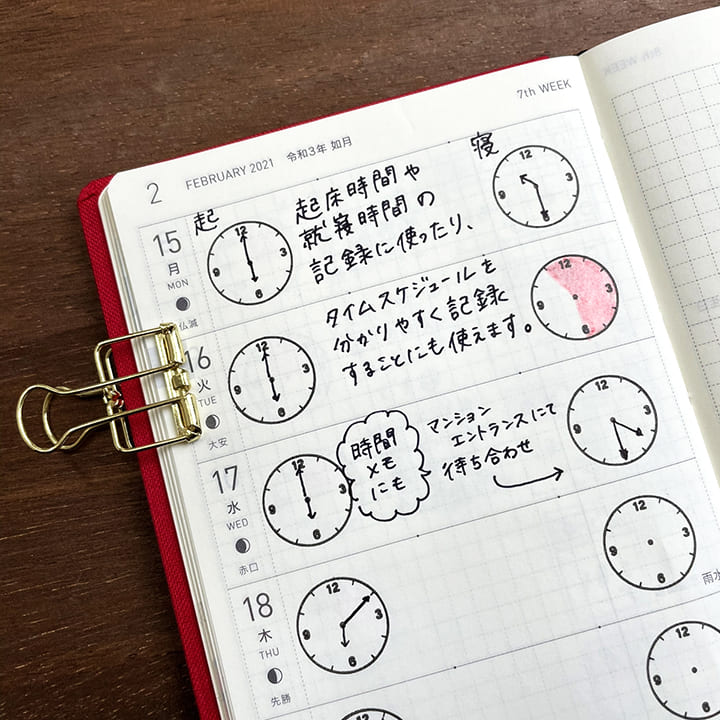 7th WEEK
2 FEBRUARY 2021 令和3年 如月
15
月
MON
仏滅
起
12
3
6
9
起床時間や
就寝時間の
記録に使ったり、
寝
12
3
6
9
16
火
TUE
大安
12
3
6
9
タイムスケジュールを
分かりやすく記録
することにも使えます。
12
3
6
9
17
水
WED
赤口
12
3
6
9
時間
メモ
にも
マンション
エントランスにて
待ち合わせ
12
3
6
9
18
木
THU
先勝
12
3
6
9
12
3
6
9
雨水
12
9
12
8th WEEK